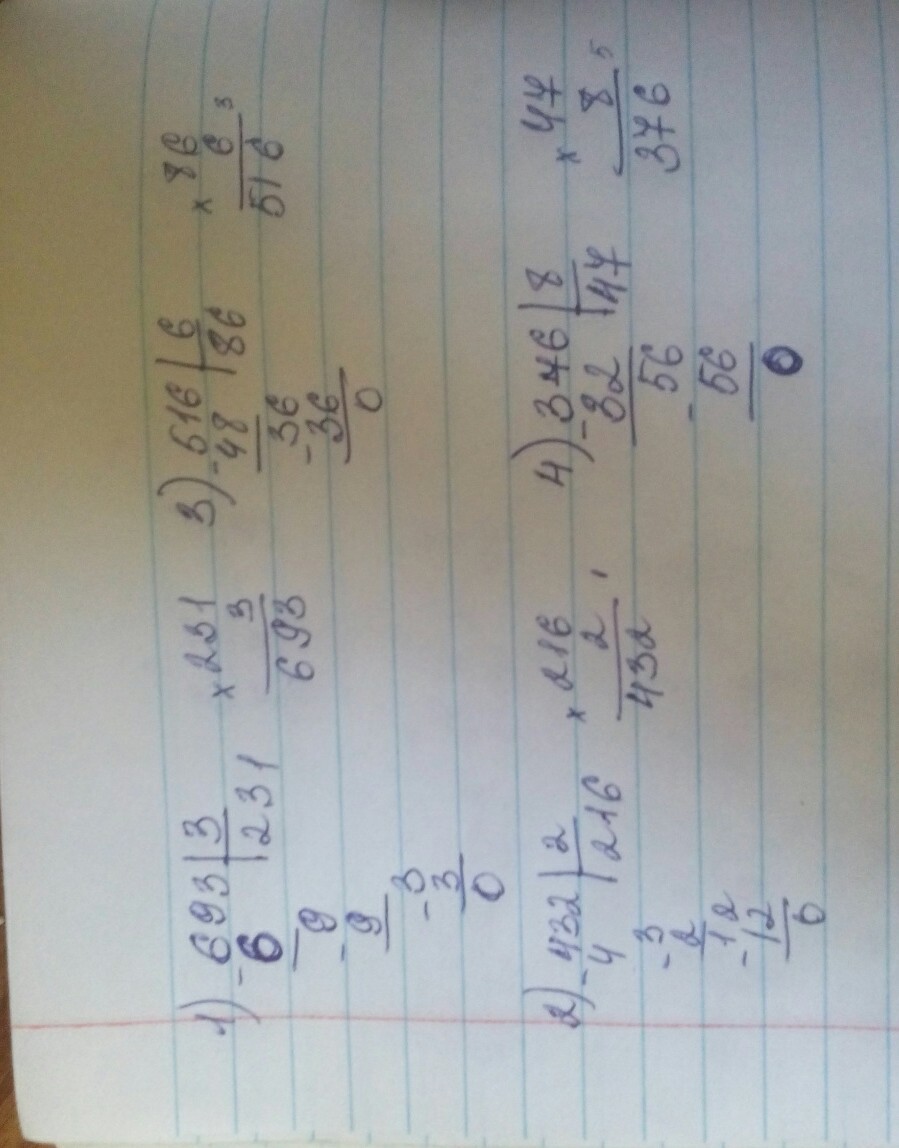 1) - 693 | 3
6 | 231
- 9
9
- 3
3
0
x 231
3
693
3) - 516 | 6
48 | 86
- 36
36
0
x 86
6 3
516
2) - 432 | 2
4 | 216
- 3
2
- 12
12
0
x 216
2 1
432
4) - 376 | 8
32 | 47
- 56
56
0
x 47
8 5
376